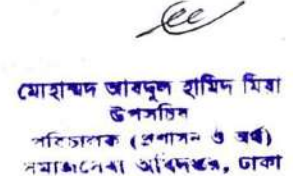 মোহাম্মদ আবদুল হামিদ মিয়া
উপসচিব
পরিচালক (প্রশাসন ও অর্থ)
সমাজসেবা অধিদপ্তর, ঢাকা